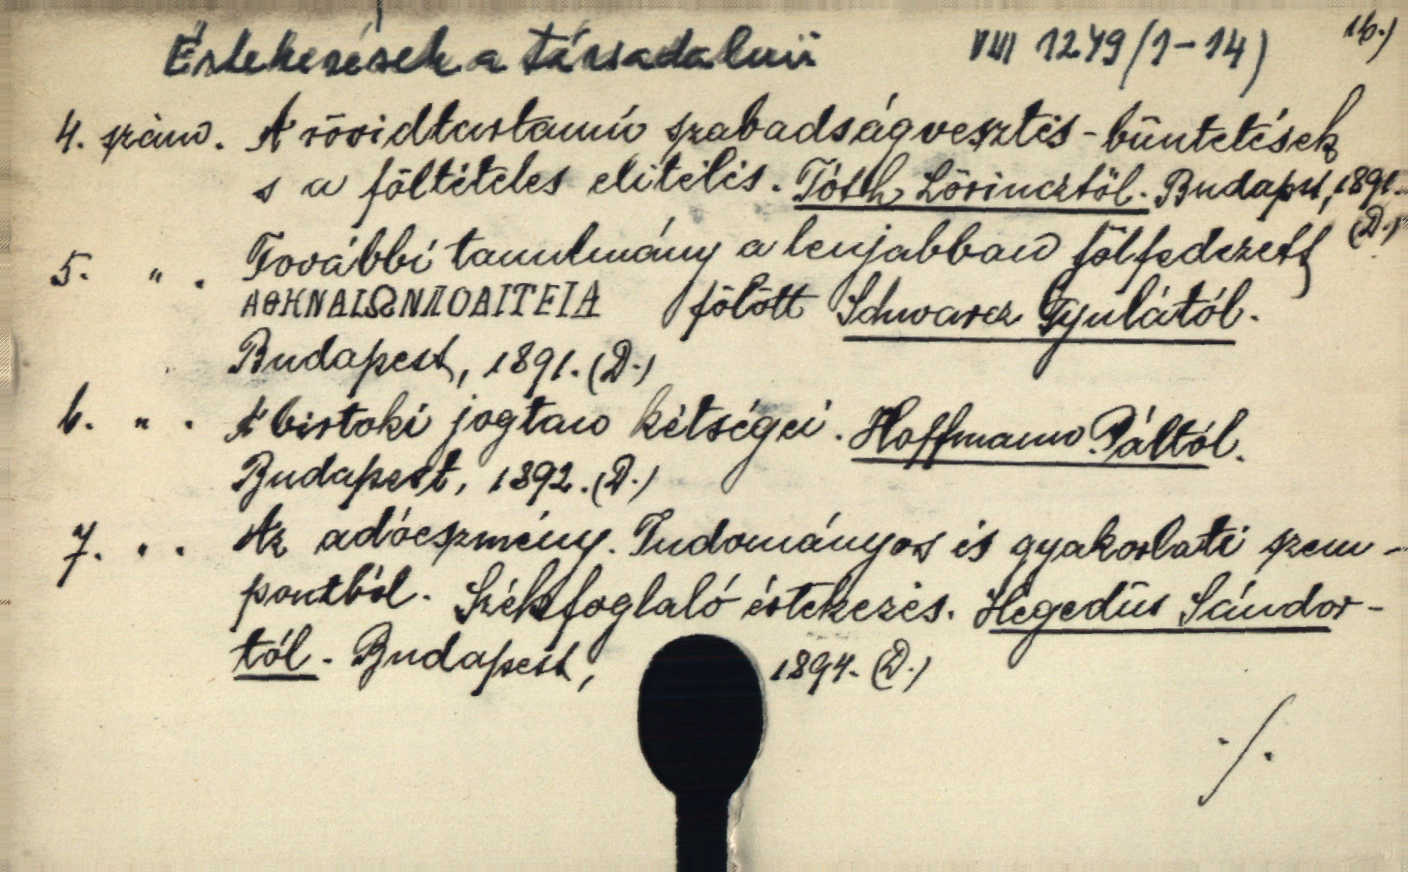 Értekezések a társadalmi VIII 1249/(1-14) 1b.)
4. szám. A rövidtartamú szabadságvesztés-büntetések
s a föltételes elítélés. Tóth Lőrincztől. Budapest, 1891.
(D.)
5. " . További tanulmány a lenjabban fölfedezett
ΑΘΗΝΑΙΩΝΠΟΛΙΤΕΙΑ fölött Schwarcz Gyulától.
Budapest, 1891. (D.)
6. " . A birtoki jogtan kétségei. Hoffmann Páltól.
Budapest, 1892. (D.)
7. " . Az adóeszmény. Tudományos és gyakorlati szem-
pontból. Székfoglaló értekezés. Hegedüs Sándor-
tól. Budapest, 1894. (D.)
./.